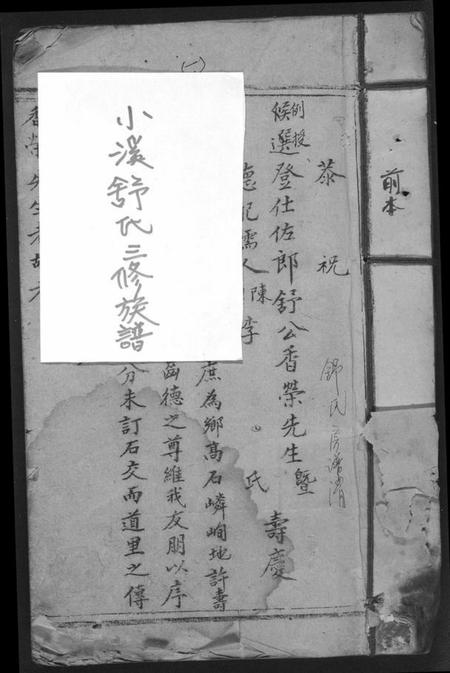 前本
恭祝
舒氏
例授
候選登仕佐郎舒公香榮先生暨
壽慶
德配孺人陳李
氏
庶為鄉髙石嶙峋地許壽
齒德之尊維我友朋以序
分未訂石交而道里之傳
香榮先生
(一)
小溪舒氏三修族譜